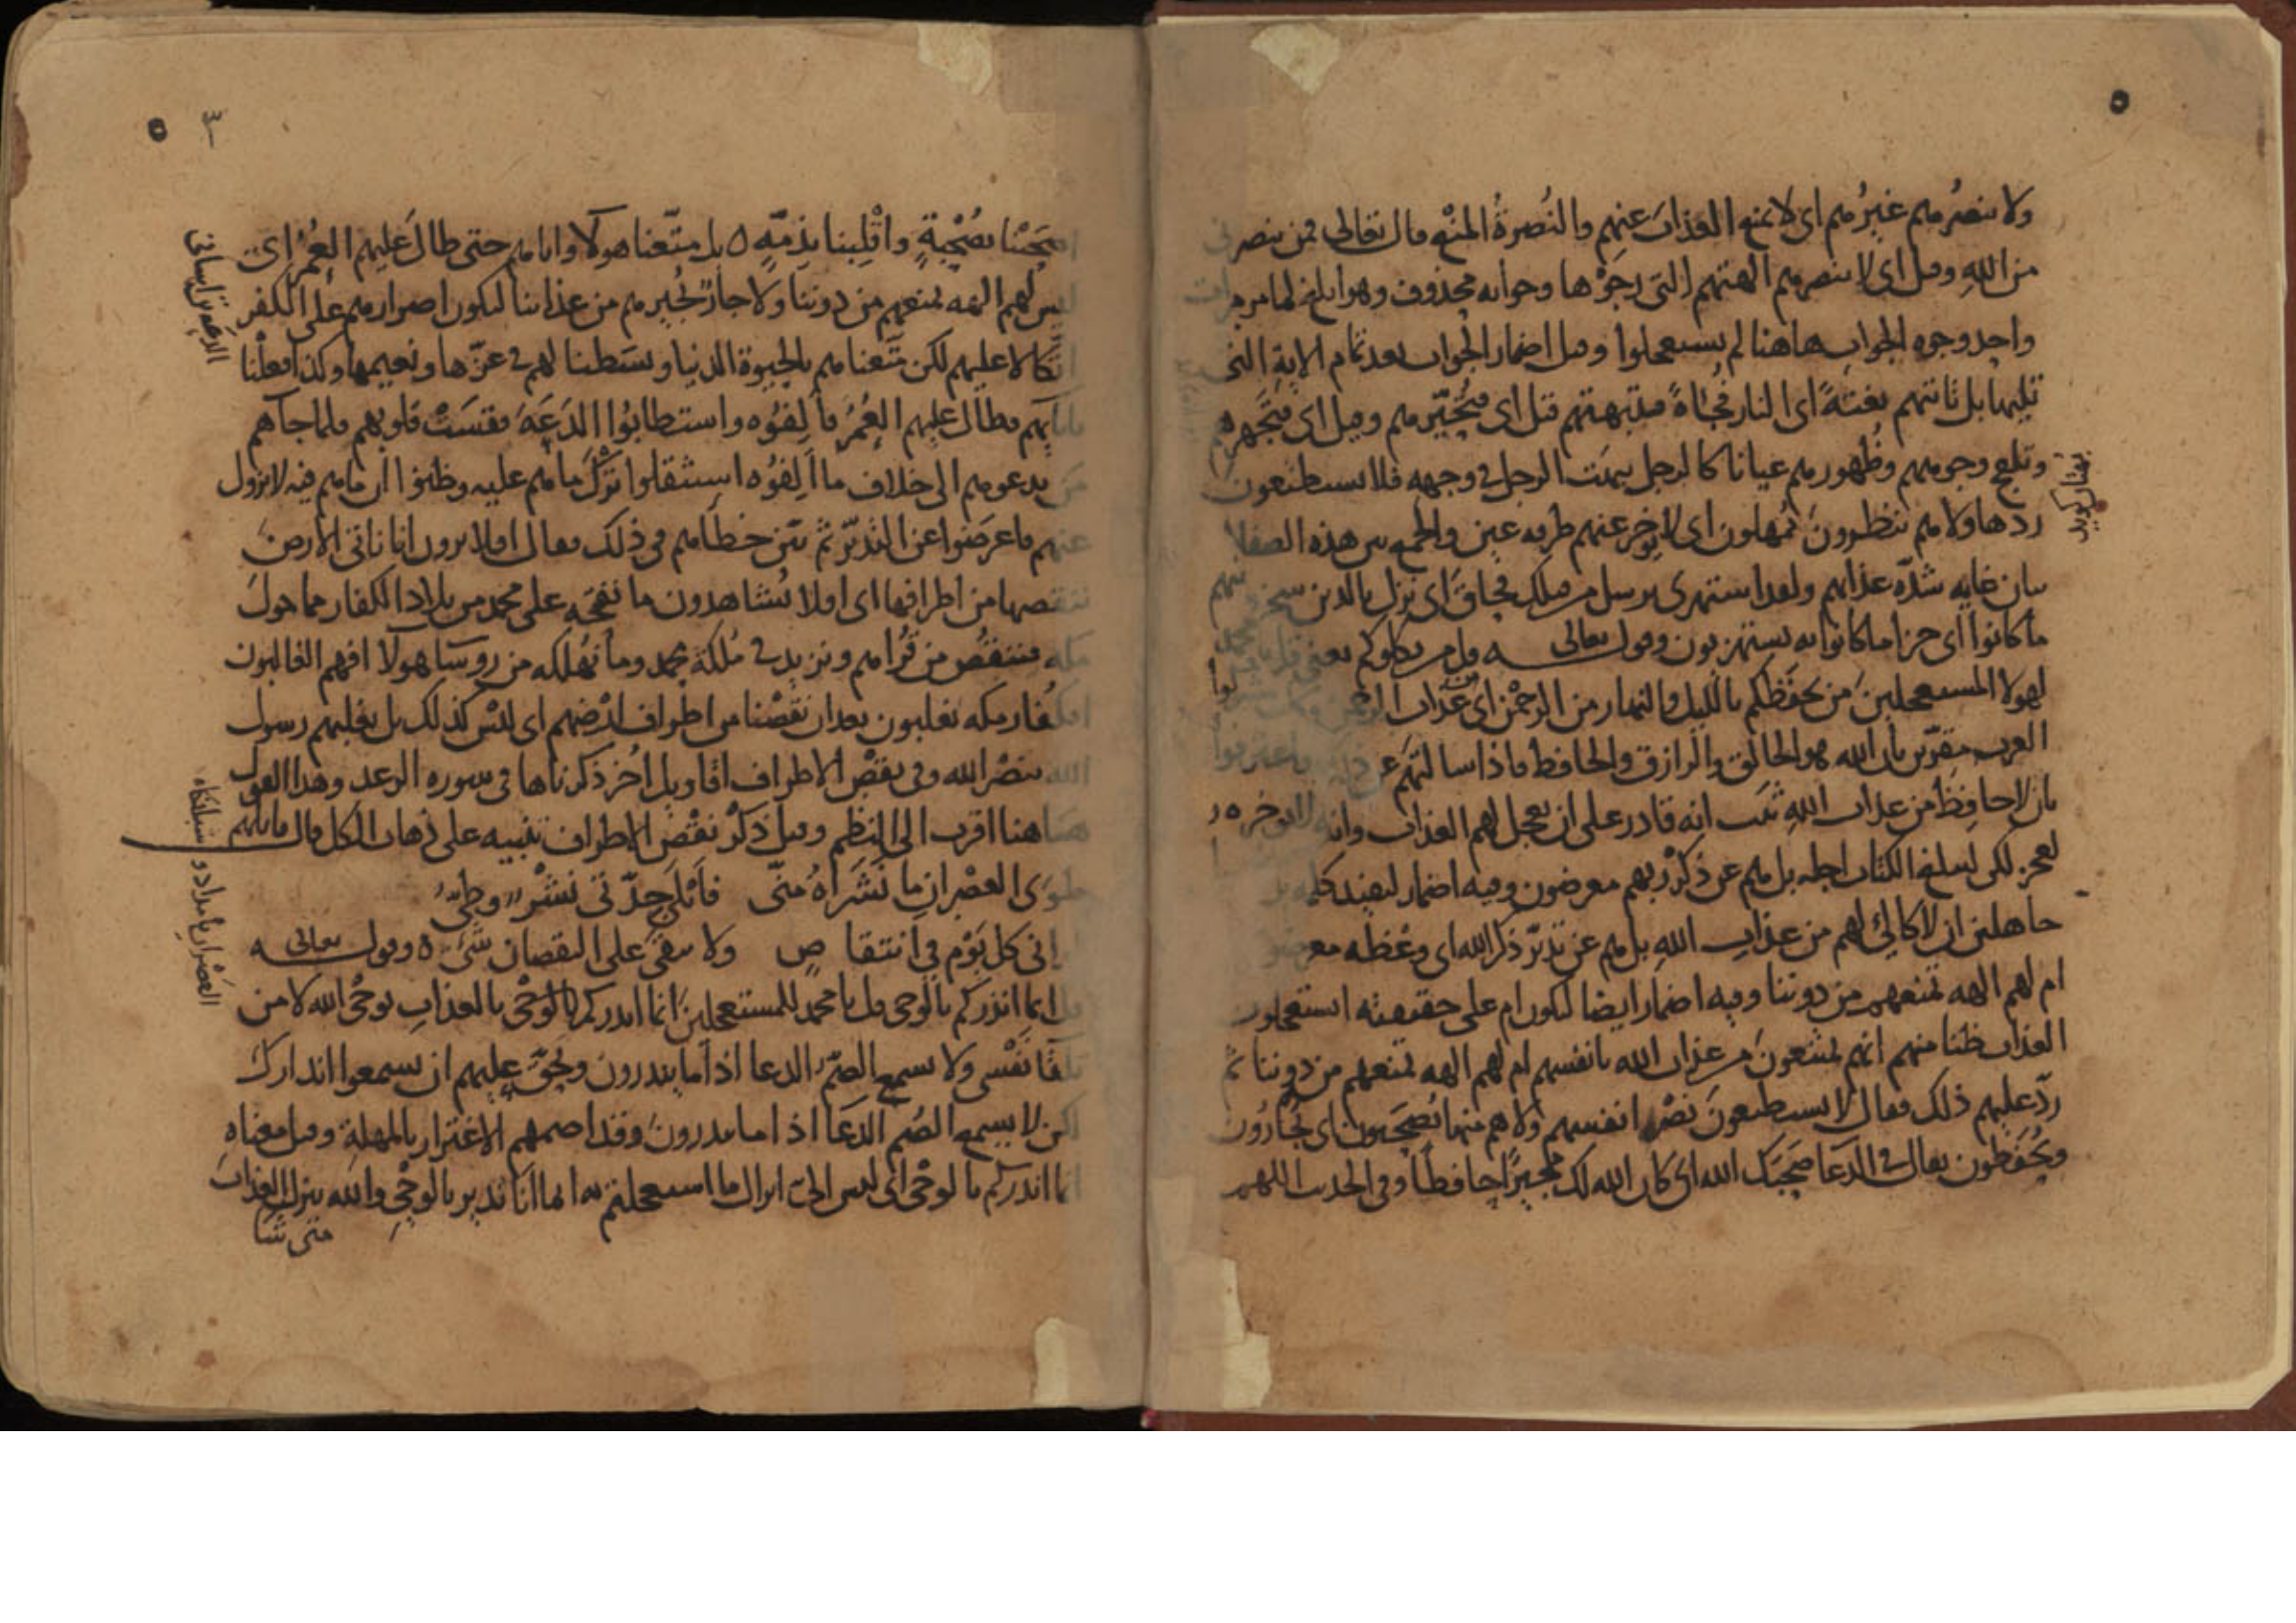 ولا ينصرهم غيرهم اى لا يمنع العذاب عنهم والنصرة المنع قال تعالى فمن ينصرنى
من الله وقيل اى لا ينصرهم الهتهم التى رجوها وجوابه محذوف وهو ابلغ لما مر مرات
واحد وجوه الجواب هاهنا لم يستعجلوا وقيل اضمار الجواب بعد تمام الاية التى
تليها بل تاتيهم بغتة اى النار فجاة فتبهتهم قيل اى فتحيرهم وقيل اى فتجهرهم
وتلفح وجوههم وظهورهم عيانا كالرجل يبهت الرجل فى وجهه فلا يستطيعون
ردها ولا هم ينظرون يمهلون اى لا يوخر عنهم طرفه عين والجمع بين هذه الصفات
بيان غايه شدة عذابهم ولقد استهزى برسل من قبلك فحاق اى نزل بالذين سخروا منهم
ما كانوا اى جزا ما كانوا به يستهزيون وقوله تعالى قل من يكلوكم يعنى قل يا محمد
لهولا المستعجلين من يحفظكم بالليل والنهار من الرحمن اى من عذاب الرحمن
العرب مقرين بان الله هو الخالق والرازق والحافظ فاذا سالتهم عن ذلك فاعترفوا
بان لا حافظ من عذاب الله ثبت انه قادر على ان يعجل لهم العذاب وانه لا يوخره
لعجز لكن ليبلغ الكتاب اجله بل هم عن ذكر ربهم معرضون وفيه اضمار ليفيد كلمه بل
جاهلين ان لا كالئ لهم من عذاب الله بل هم عن تدبر ذكر الله اى وعظه معرضون
ام لهم الهه تمنعهم من دوننا وفيه اضمار ايضا ليكون ام على حقيقته استعجلون
العذاب ظنا منهم انهم يمنعون من عذاب الله بانفسهم ام لهم الهه تمنعهم من دوننا ثم
رد عليهم ذلك فقال لا يستطيعون نصر انفسهم ولا هم منا يصحبون اى يجارون
ويحفظون يقال فى الدعا صحبك الله اى كان الله لك مجيرا حافظا وفى الحديث اللهم
يقال كويد
٥
اصحبنا بصحبة واقلبنا بذمة ٥ بل متعنا هولا واباهم حتى طال عليهم العمر اى
ليس لهم الهه تمنعهم من دوننا ولا جار يجيرهم من عذابنا ليكون اصرارهم على الكفر
اتكالا عليهم لكن متعناهم بالحيوة الدنيا وبسطنا لهم فى عزها ونعيمها وكذا فعلنا
بابايهم فطال عليهم العمر فالفوه واستطابوا الدعة فقست قلوبهم فلما جاهم
من يدعوهم الى خلاف ما الفوه استثقلوا ترك ما هم عليه وظنوا ان ما هم فيه لا يزول
عنهم فاعرضوا عن التدبر ثم بين خطاهم فى ذلك فقال افلا يرون انا ناتى الارض
ننقصها من اطرافها اى اولا يشاهدون ما نفتحه على محمد من بلاد الكفار مما حول
مكه فننقص من قراهم ونزيد فى ملكة محمد وما نهلكه من روسا هولا افهم الغالبون
اكفار مكه يغلبون بعد ان نقصنا من اطراف ارضهم اى ليس كذلك بل يغلبهم رسول
الله بنصر الله وفى نقص الاطراف اقاويل اخر ذكرناها فى سوره الرعد وهذا القول
هاهنا اقرب الى النظم وقيل ذكر نقص الاطراف تنبيه على ذهاب الكل قال قايلهم
طوى العصران ما نشراه منى فابلى جدتى نشر وطى
ارانى كل يوم فى انتقاص ولا يبقى على النقصان شى ٥ وقوله تعالى
قل انما انذركم بالوحى قل يا محمد للمستعجلين انما انذركم بالوحى بالعذاب بوحى الله لا من
تلقا نفسى ولا يسمع الصم الدعا اذا ما ينذرون وحق عليهم ان يسمعوا انذارك
لكن لا يسمع الصم الدعا اذا ما ينذرون وقد اصمهم الاغترار بالمهلة وقيل معناه
انما انذركم بالوحى اى ليس الى انزال ما استعجلتم به انما انا نذير بالوحى والله ينزل العذاب
متى شا
الدعه تن اسانى
العصران بامداد و شبانكاه
٣ ٥